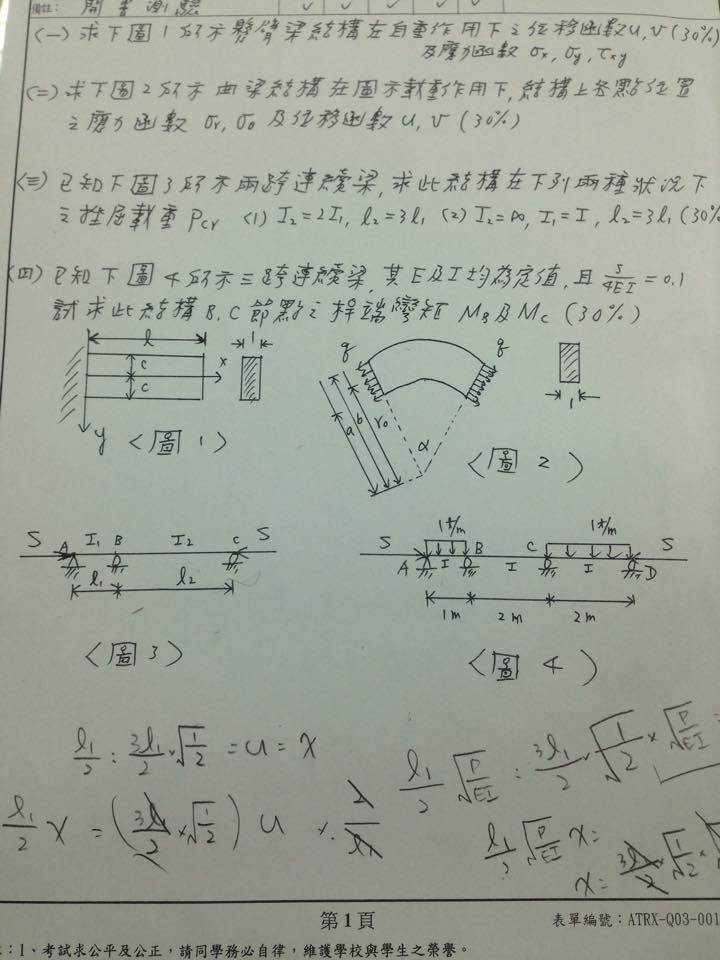 備註: 開書測驗
(一) 求下圖1所示懸臂梁結構在自重作用下之位移函數u, v (30%)
及應力函數 σx, σy, τxy
(二) 求下圖2所示曲梁結構在圖示載重作用下,結構上各點位置
之應力函數 σr, σθ 及位移函數 u, v (30%)
(三) 已知下圖3所示兩跨連續梁,求此結構在下列兩種狀況下
之挫屈載重 Pcr (1) I2=2I1, l2=3l1 (2) I2=∞, I1=I, l2=3l1 (30%
(四) 已知下圖4所示三跨連續梁,其E及I均為定值,且 S/4EI = 0.1
試求此結構B,C節點之桿端彎矩 MB及MC (30%)
l
1
c
c
x
y
<圖1>
q
q
a
b
r0
α
1
<圖2>
S A I1 B I2 C S
l1 l2
<圖3>
1t/m 1t/m
S A I B I C I D S
1m 2m 2m
<圖4>
l1/2 : 3l1/2 × √(1/2) = u = x
l1/2 √(P/EI) : 3l1/2 × √(1/2) × √(P/EI)
l1/2 x = (3l1/2 × √(1/2)) u × 2/l1
l1/2 √(P/EI) x =
x = 3l1/2 × √(1/2) ×
第1頁
表單編號：ATRX-Q03-001
：1、考試求公平及公正，請同學務必自律，維護學校與學生之榮譽。